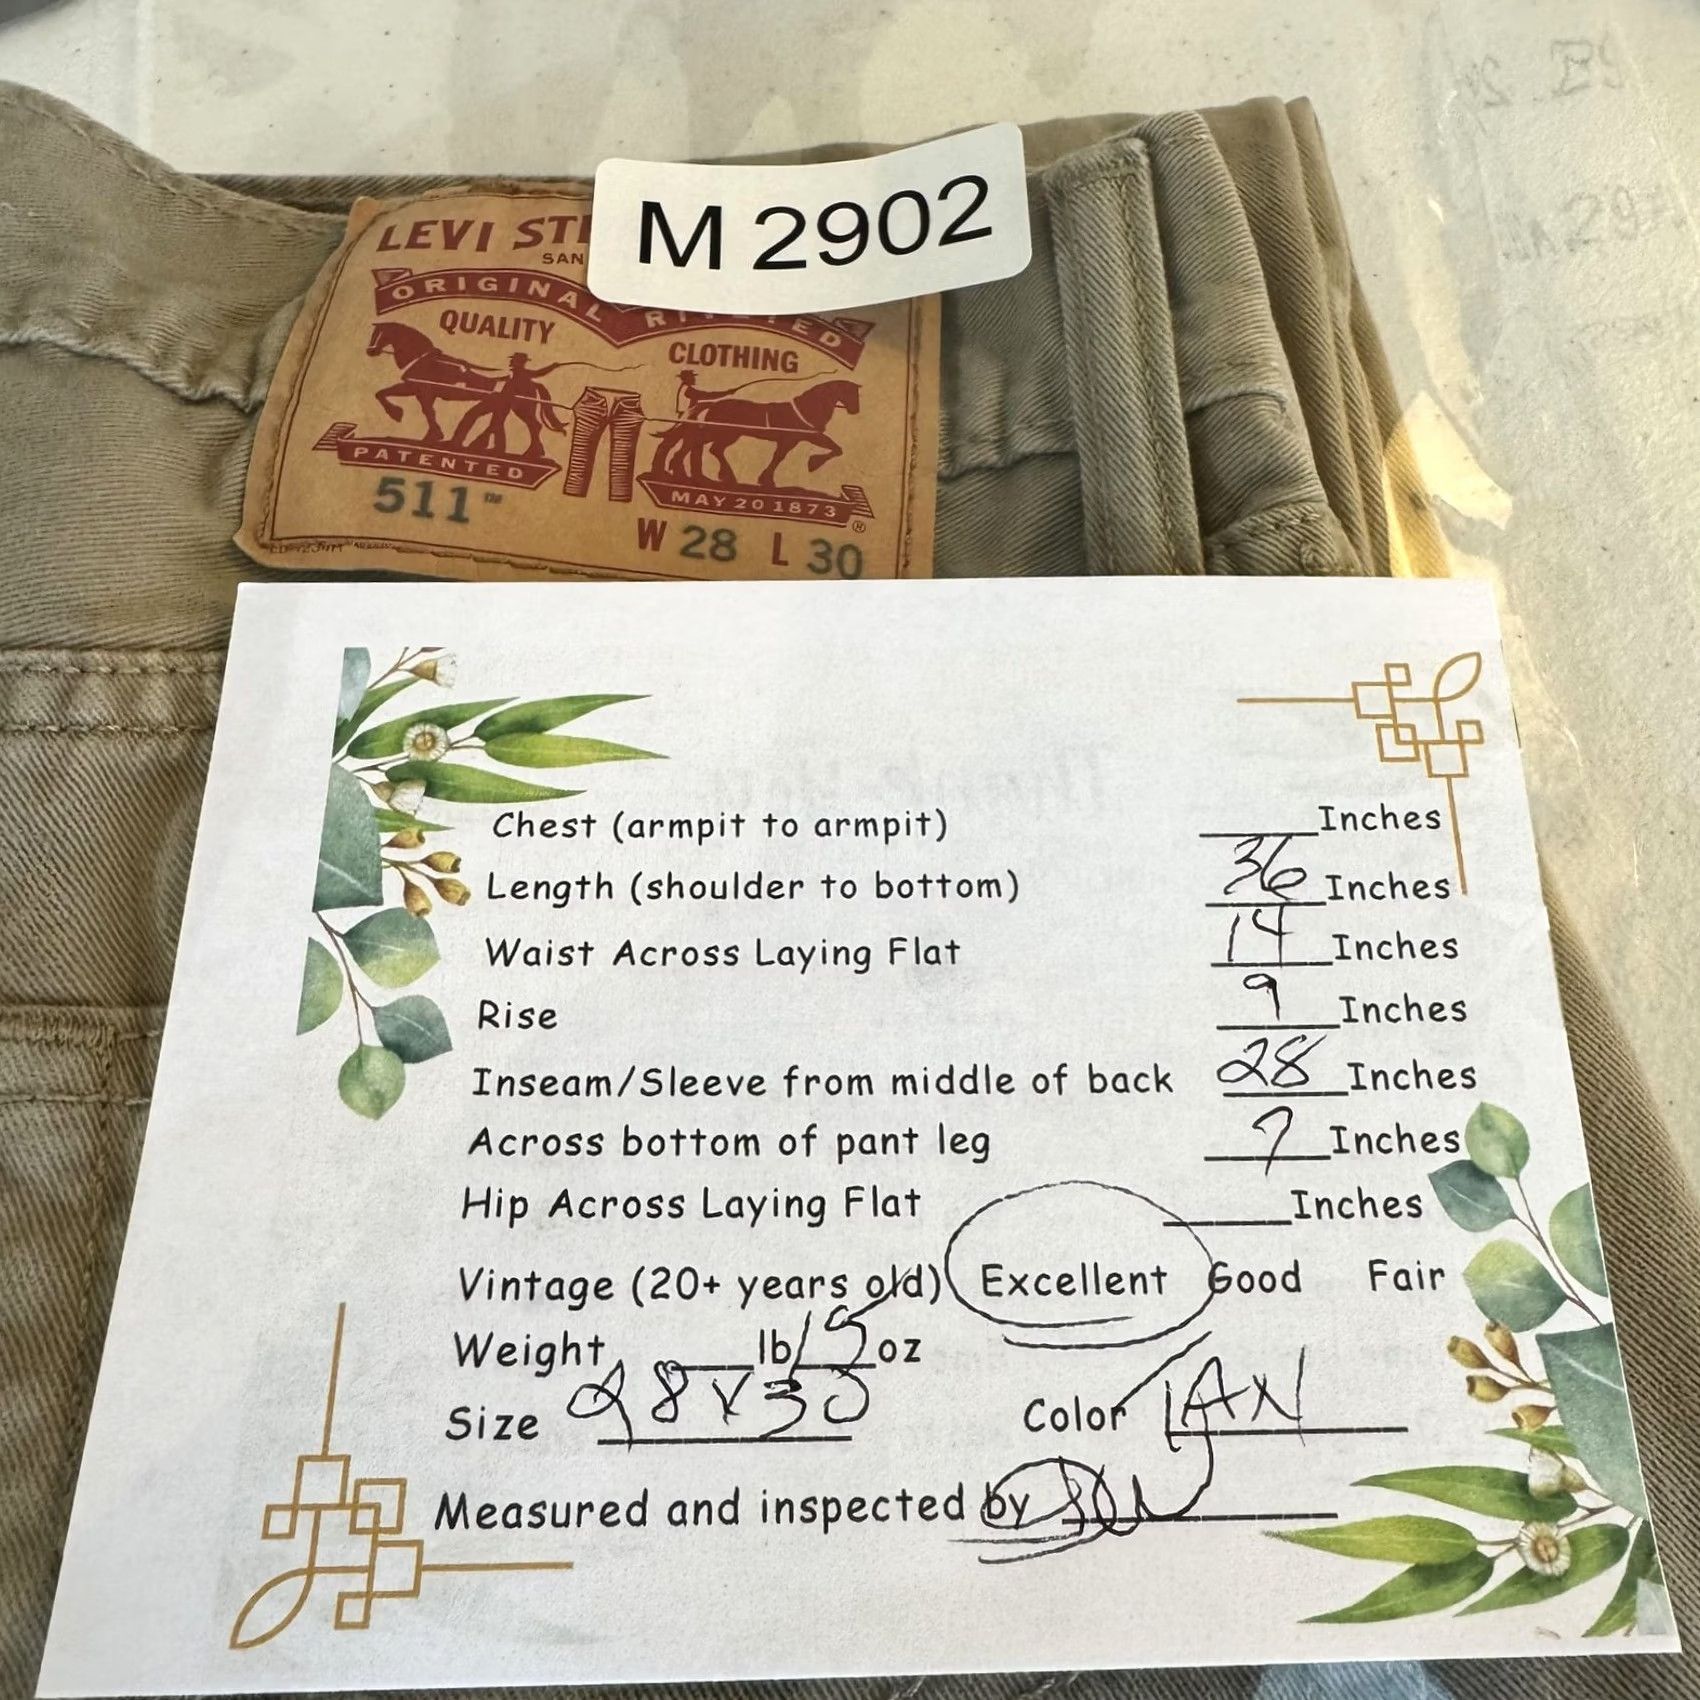 M 2902
LEVI STR
SAN
ORIGINAL RIVETED
QUALITY CLOTHING
PATENTED
MAY 20 1873 ®
511™
W 28 L 30
Chest (armpit to armpit) ______Inches
Length (shoulder to bottom) 36 Inches
Waist Across Laying Flat 14 Inches
Rise 9 Inches
Inseam/Sleeve from middle of back 28 Inches
Across bottom of pant leg 7 Inches
Hip Across Laying Flat ______Inches
Vintage (20+ years old) Excellent Good Fair
Weight ____lb 15 oz
Size 28X30 Color TAN
Measured and inspected by